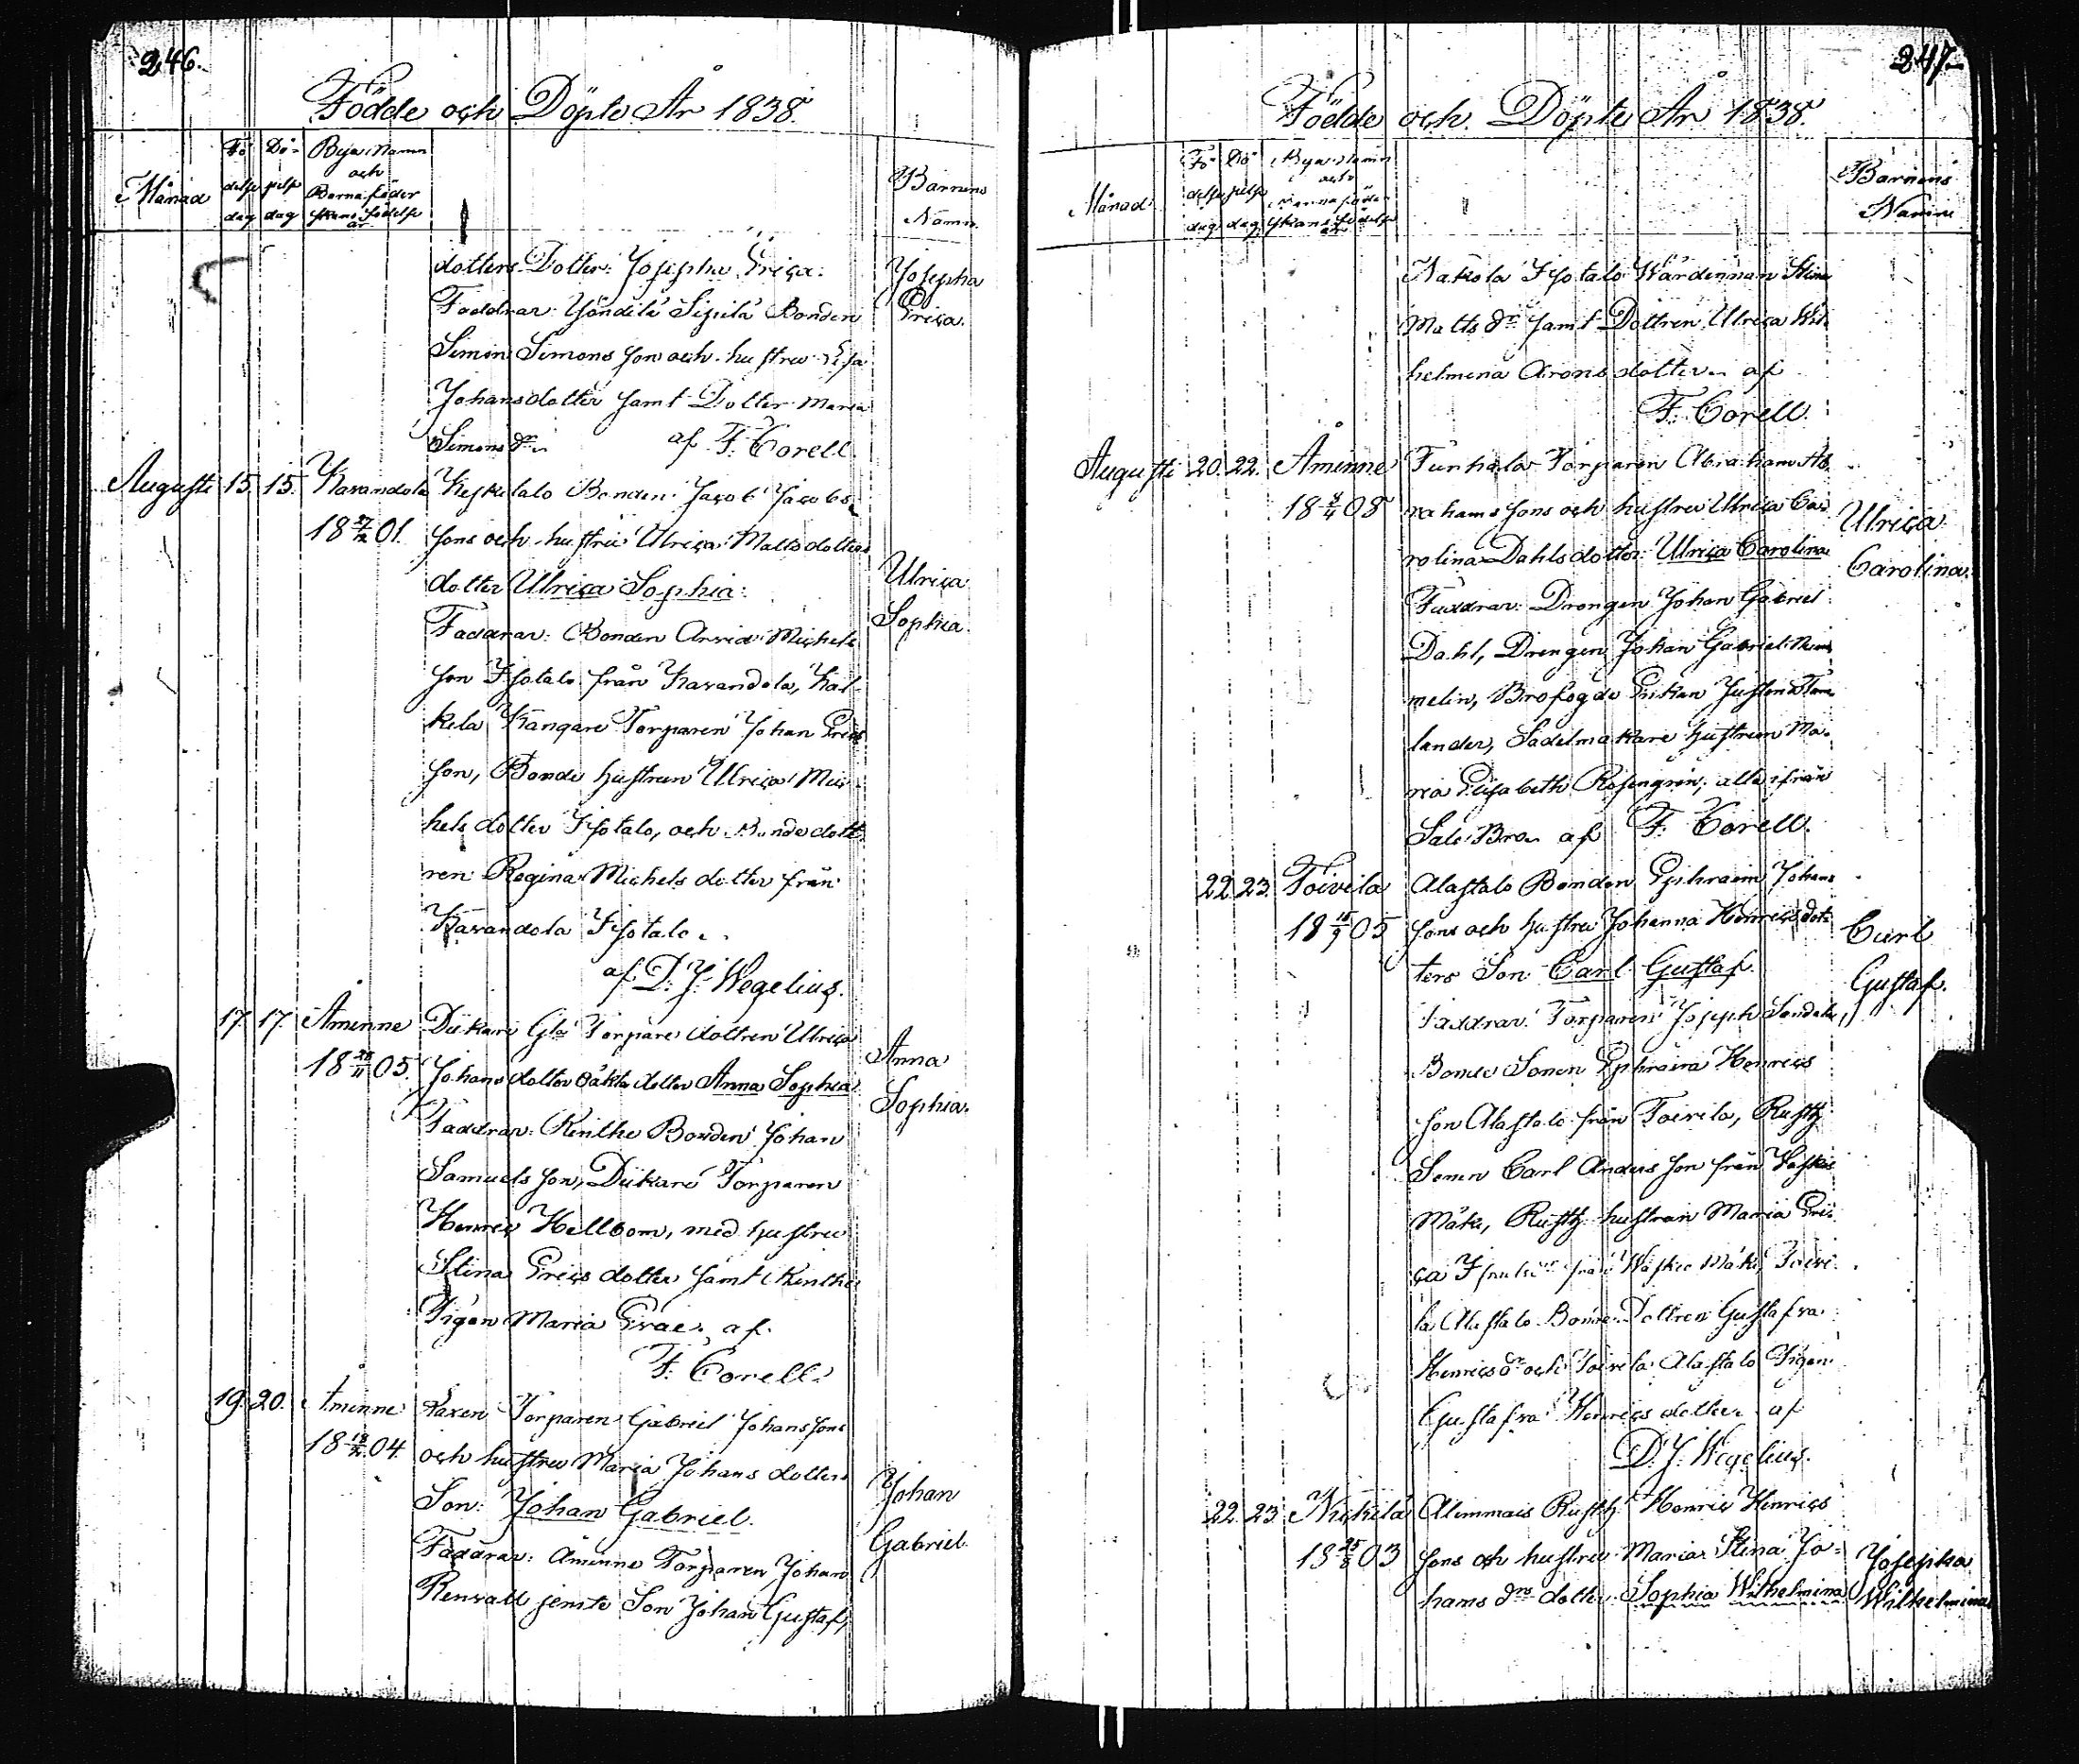 246.
Födde och Döpte År 1838.
Månad
Fö
delse
dag
Dö-
pelse
dag
Byars Namn
och
Barnaföder
skans Födelse
år
Barnens
Namn
dotters Dotter: Josepha Eriça.
Josepha
Eriça.
Faddrar: Yöndilä Sipilä Bonden
Simon Simons son och hustru
Johansdotter samt Dotter Maria
Simons dr. af F: Corell.
Augusti 15. 15. Karandola Keskitalo Bonden Jacob Jacobs
18 27/2 01. sons och hustru Ulriça Mattsdotters
dotter Ulriça Sophia:
Ulriça
Sophia.
Faddrar: Bonden Arvid Michels
son Isotalo från Karandola, Kal-
kela Kangare Torparen Johan Erics
son, Bonde hustrun Ulriça Mic-
hels dotter Isotalo, och Bonde dott
ren Regina Michels dotter från
Karandola Isotalo.
af D: J: Wegelius.
17. 17. Åminne Dikare Torpare dottren Ulriça
18 05. Johans dotter oäkta dotter Anna Sophia
Anna
Sophia.
Faddrar: Kinthe Bonden Johan
Samuels son, Dikare Torparen
Henriç Hellbom, med hustru
Stina Erics dotter samt Kinthe
Pigan Maria af
F: Corell.
19. 20. Åminne Torparen Gabriel Johans sons
18 04. och hustru Maria Johans dotters
Son: Johan Gabriel.
Johan
Gabriel.
Faddrar: Åminne Torparen Johan
Renvall jemte Son Johan Gustaf,
247.
Födde och Döpte År 1838.
Månad
Fö-
delse
dag
Dö-
pelse
dag
Byars Namn
och
Barnaföder
skans Födelse
år
Barnens
Namn
Nakola Isotalo Wärdinnan Stina
Matts dr. samt Dottren Ulriça Wil-
helmina Arons dotter. af
F: Corell.
Augusti 20. 22. Åminne Furhala Torparen Abraham Ab-
18 08 rahams sons och hustru Ulriça Ca-
rolina Dahls dotter: Ulriça Carolina
Ulriça
Carolina.
Faddrar: Drängen Johan Gabriel
Dahl, Drengen Johan Gabriel
melin, Brofogde
lander, Sadelmakare hustrun Ma-
ria Elisabeth Rosengren, alla ifrån
Salo Bro. af F: Corell.
22. 23. Toivila Alastalo Bonden Ephraim Johans
18 15/9 05 sons och hustru Johanna Henrics dot-
ters Son Carl Gustaf.
Carl
Gustaf.
Faddrar: Torparen Joseph
Bonde Sonen Ephraim Henrics
son Alastalo från Toivila, Rusth:
Sonen Carl Anders son från Waskio
Mäki, Rusth: hustrun Maria Eri-
ça från Waskio Mäki, Toivi-
la Alastalo Bonde Dottren Gustafva
Henrics dr och Toivila Alastalo Pigan
Gustafva Henrics dotter af
D: J: Wegelius.
22. 23. Nickilä Alimmais Rusth: Henriç Henrics
18 03 sons och hustru Maria Stina Jo-
hans drs dotter Sophia Wilhelmina
Josepha
Wilhelmina